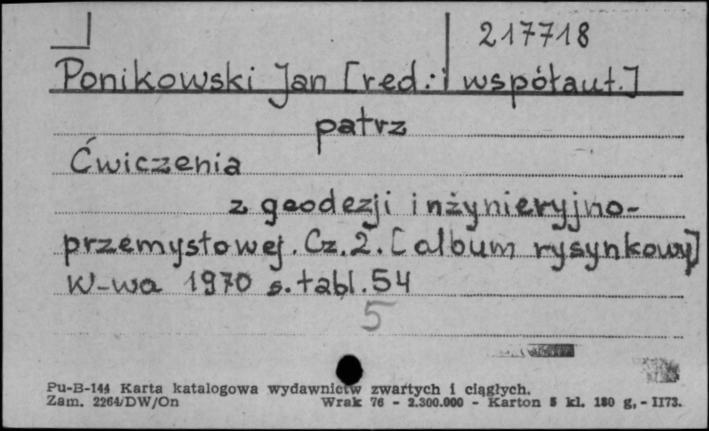 217718
Ponikowski Jan [red. i współaut.]
patrz
Ćwiczenia
z geodezji inżynieryjno-
przemysłowej. Cz. 2. [album rysynkowy]
W-wa 1970 s. tabl. 54
5
Pu-B-144 Karta katalogowa wydawnictw zwartych i ciągłych.
Zam. 2264/DW/On Wrak 76 - 2.300.000 - Karton 5 kl. 180 g. - II73.